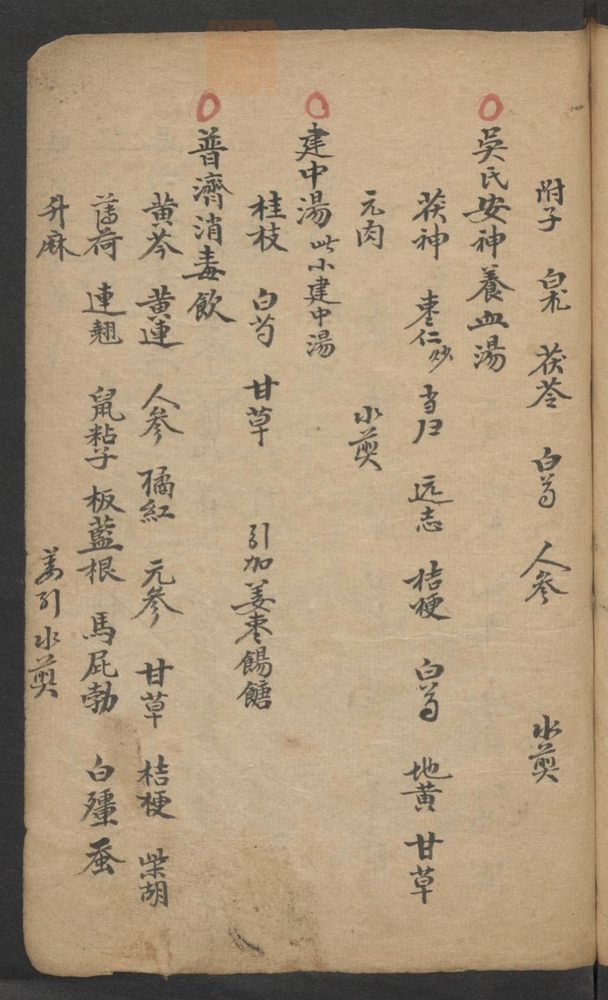 附子 白朮 茯苓 白芍 人參 水煎
吳氏安神養血湯
茯神 枣仁炒 当归 远志 桔梗 白芍 地黄 甘草
元肉 水煎
建中湯 此小建中湯
桂枝 白芍 甘草 引加姜枣餳餹
普濟消毒飲
黄芩 黄連 人參 橘紅 元參 甘草 桔梗 柴胡
薄荷 連翹 鼠粘子 板藍根 馬屁勃 白殭蚕
升麻 姜引水煎